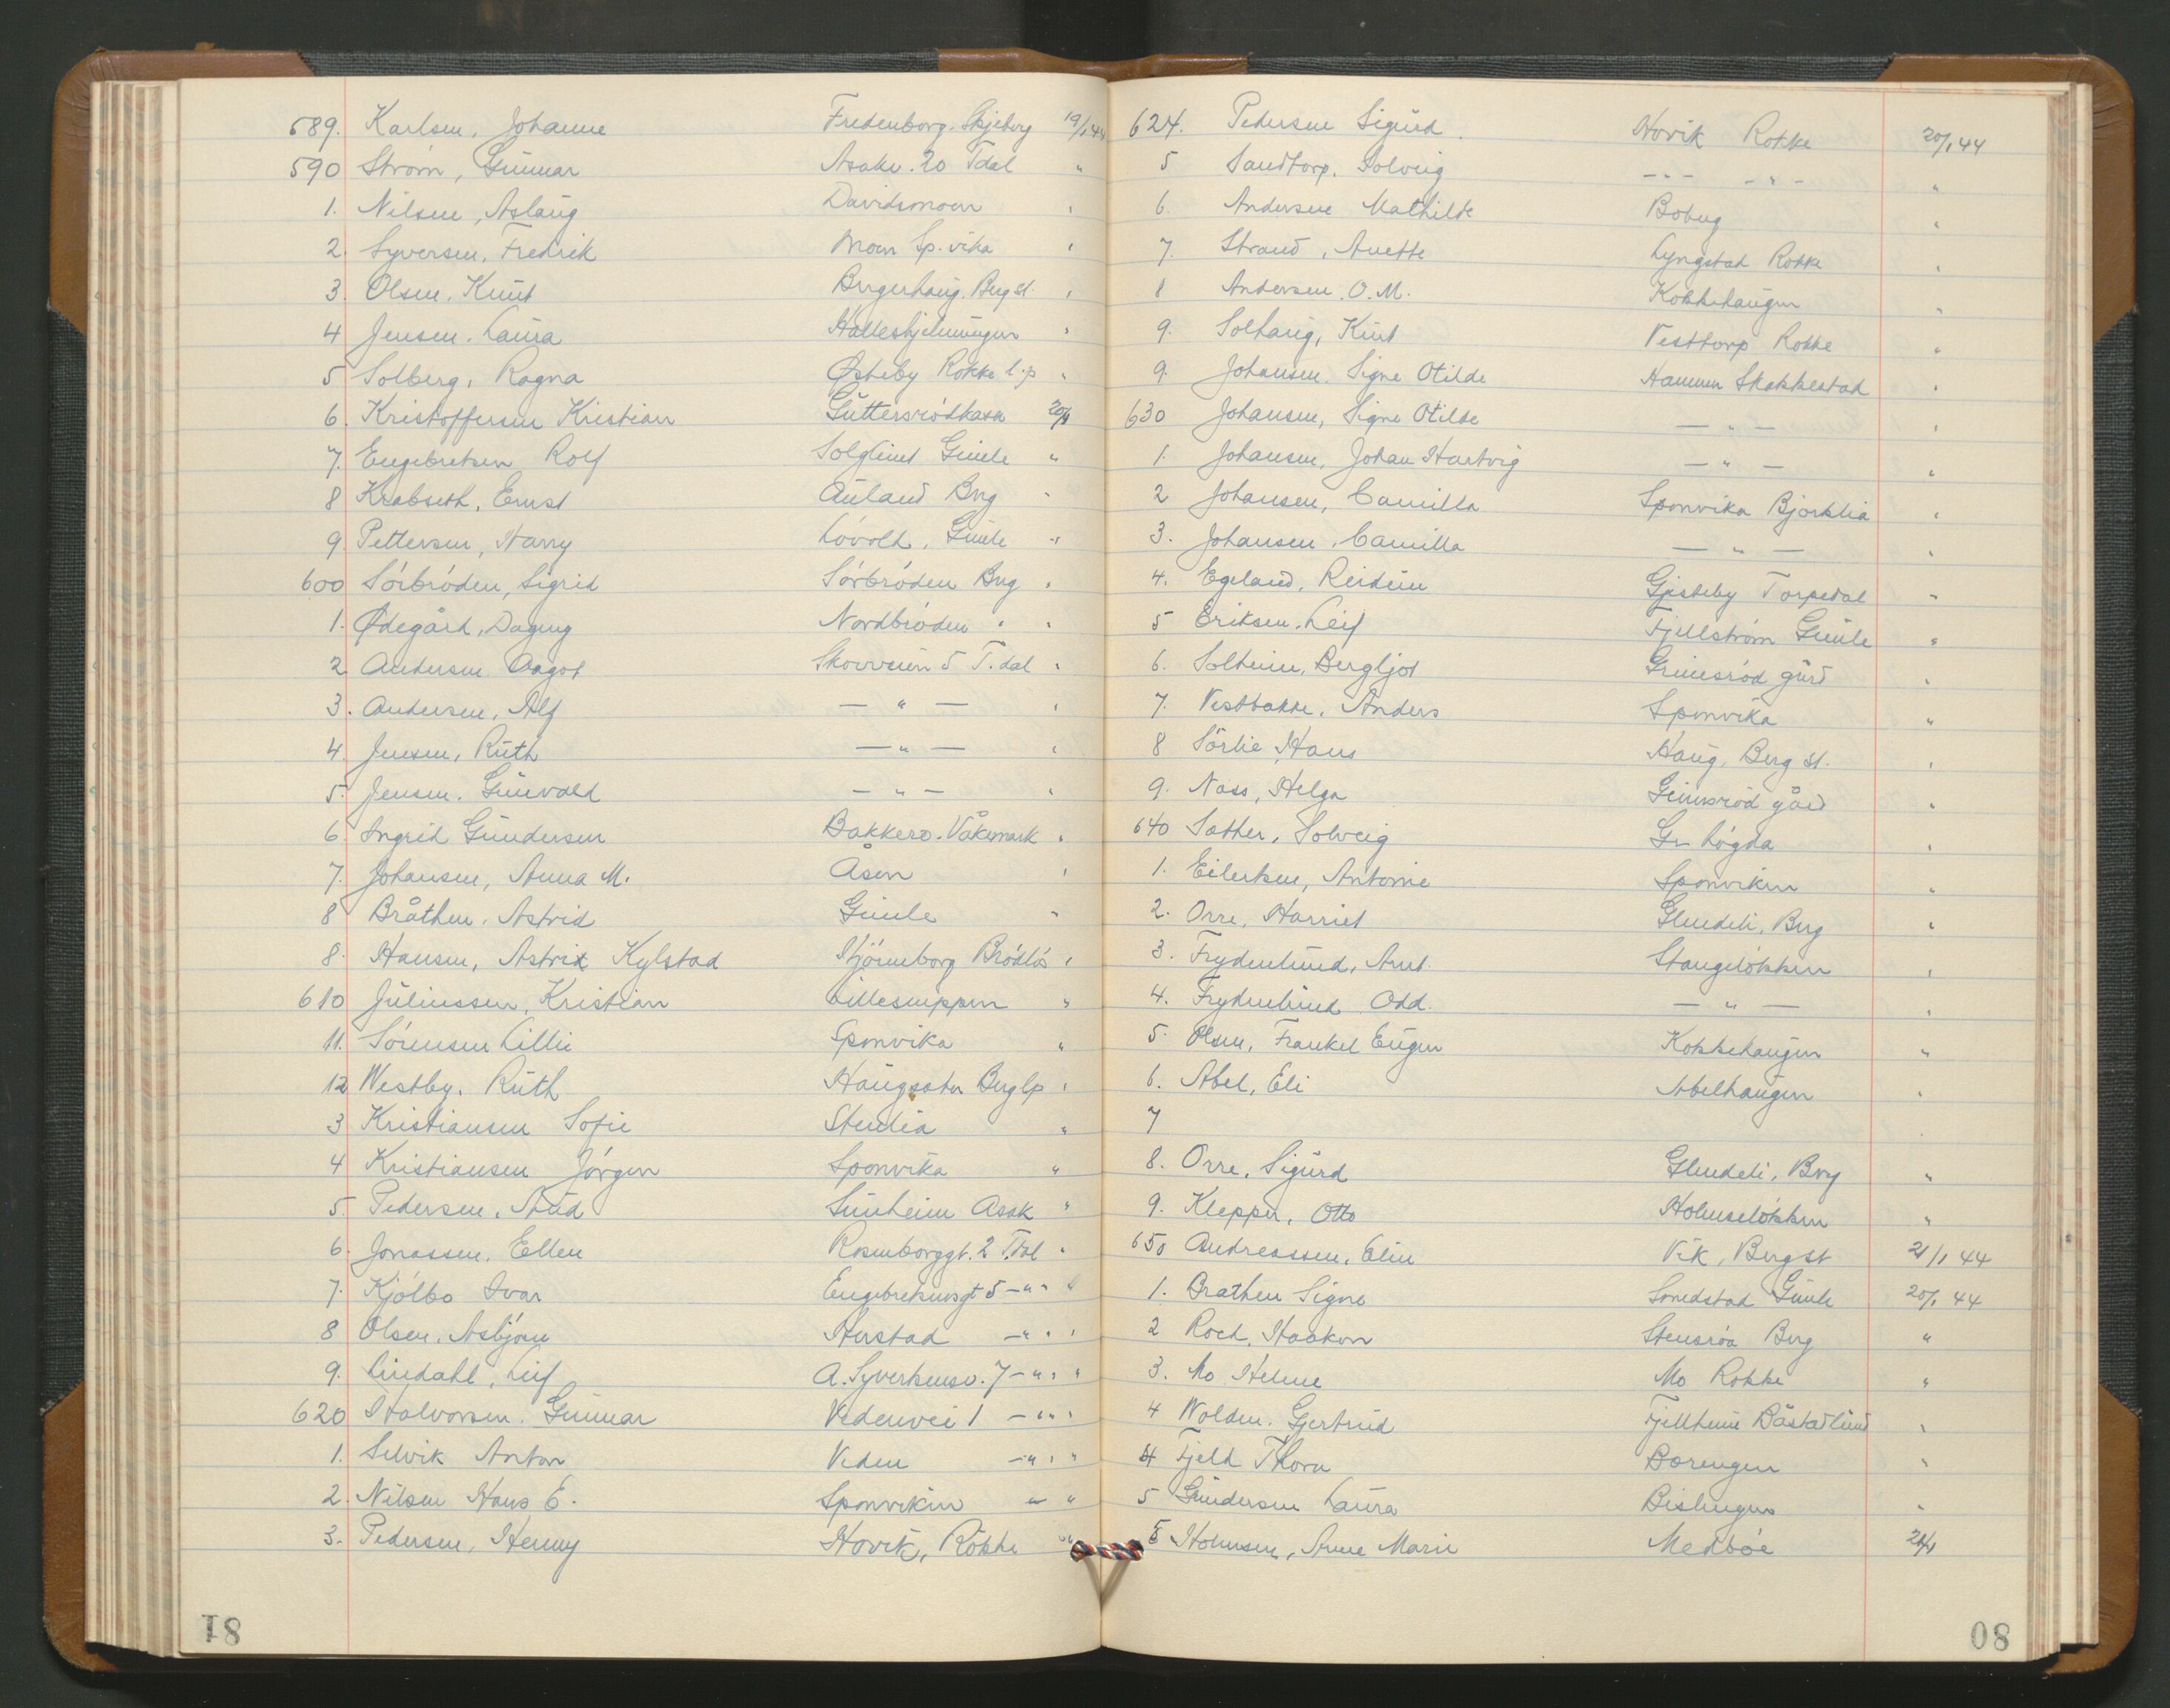 589. Karlsen, Johanne Fredenborg. Skjeberg 19/1 44
590 Strøm, Gunnar Asakv. 20 Tdal "
1. Nilsen, Aslaug Davidsmoen "
2. Syversen, Fredrik Moen Sp.vika "
3. Olsen, Knut Bergerhaug. Berg st. "
4 Jensen. Laura Halleskjelmungen "
5 Solberg, Ragna Østeby Rokke l.p "
6. Kristoffersen Kristian Guttersrödkasa 20/1
7. Engebretsen Rolf Solglimt Gimle "
8 Krabseth, Ernst Auland Berg "
9 Pettersen, Harry Lövolt, Gimle "
600 Sörbröden, Sigrid Sörbröden Berg "
1. Ødegård, Dagny Nordbröden " "
2 Andersen Aagot Skovveien 5 T.dal "
3. Andersen, Alf — " — "
4 Jensen, Ruth — " — "
5. Jensen. Gunvald — " — "
6. Ingrid Gundersen Bakkero. Våkemark "
7. Johansen, Anna M. Åsen "
8 Bråthen, Astrid Gimle "
8. Hansen, Astrid Kylstad Stjörneborg Brödlös "
610 Juliussen, Kristian Lillesnippen "
11. Sörensen Lilli Sponvika "
12 Westby, Ruth Haugsater Berg lp "
3 Kristiansen Sofie Stenlia "
4 Kristiansen Jörgen Sponvika "
5. Pedersen, Aud Sunheim Asak "
6. Jonassen, Ellen Rosenborggt. 2 T.dal "
7. Kjölbo Ivar Engebretsensgt 5 — " " "
8 Olsen, Asbjörn Herstad — " " "
9. Lindahl, Leif A. Syvertsensv. 7 — " " "
620 Halvorsen. Gunnar Vedenvei 1 — " " "
1. Selvik Anton Veden — " " "
2. Nilsen Hans E. Sponviken " "
3. Pedersen, Henny Hovik, Rokke "
81
624. Pedersen Sigurd. Hovik Rokke 20/1 44
5 Sandtorp. Solveig - " - - " - "
6. Andersen Mathilde Boberg "
7. Strand, Anette Lyngstad Rokke "
8 Andersen. O. M. Kokkehaugen "
9. Solhaug, Knut Vesttorp Rokke "
9. Johansen. Signe Otilde Hammen Skakkestad "
630 Johansen, Signe Otilde — " — "
1. Johansen, Johan Hartvig — " — "
2 Johansen, Camilla Sponvika Björklia "
3. Johansen, Camilla — " — "
4. Egeland, Reidun Gjesteby Torpedal "
5 Eriksen. Leif Fjellström Gimle "
6. Solheim, Bergljot Grimsröd gård "
7. Vestbakke, Anders Sponvika "
8 Sörlie, Hans Haug, Berg st. "
9. Nass, Helga Grimsröd gård "
640 Sather, Solveig Gr. Lögda "
1. Eilertsen, Antonie Sponviken "
2. Orre, Harriet Glendeli, Berg "
3. Frydenlund, Arnt. Stangelökken "
4. Frydenlund Odd. — " — "
5. Olsen, Frankel Eugen Kokkehaugen "
6. Abel, Eli Abelhaugen "
7
8. Orre, Sigurd Glendeli, Berg "
9. Klepper, Otto Holmselökken "
650 Andreassen, Elin Vik, Berg st 21/1 44
1. Brathen Signe Smedstad Gimle 20/1 44
2 Roch, Haakon Stensröa Berg "
3. Mo Helene Mo Rokke "
4 Wolden. Gjertrud Fjellheim Båstadlund "
4 Fjeld Thora Borengen "
5 Gundersen Laura Bislingen "
5 Holmsen, Anne Marie Medböe 21/1
80